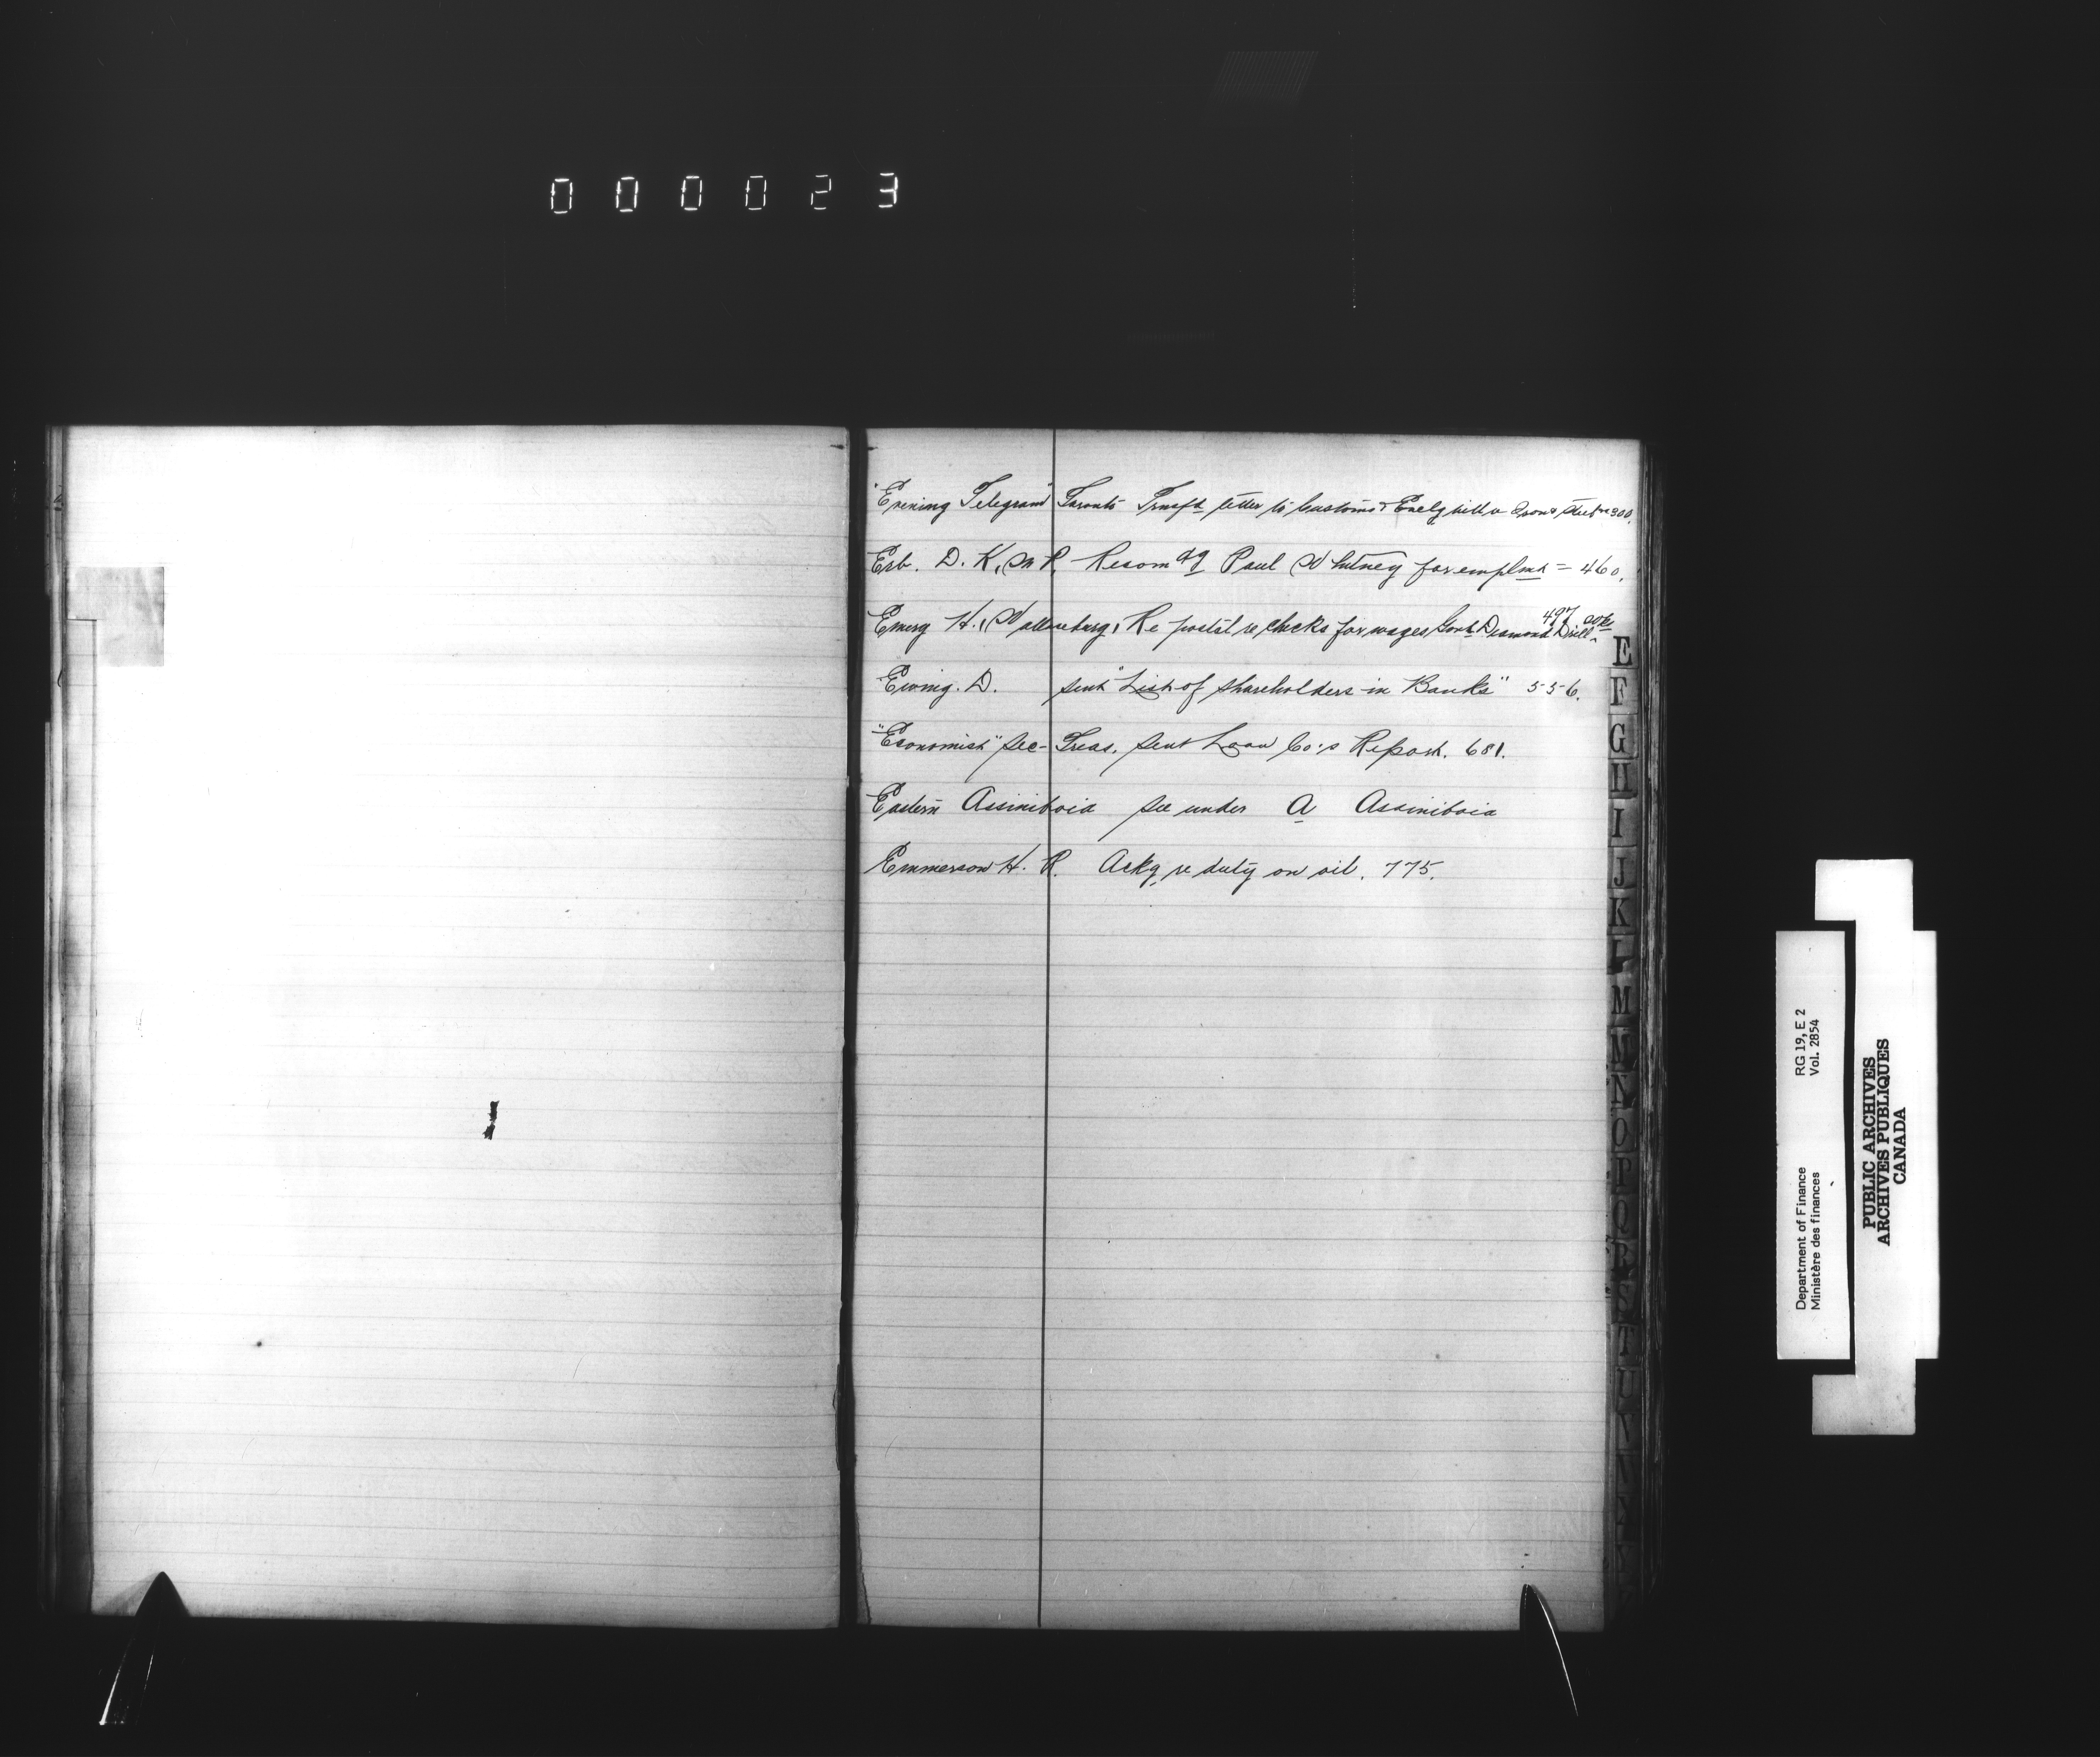 000023
"Evening Telegram" Toronto Transfd letter to Customs re 300.
Erb. D. K, M P. Recomdg Paul Whitney for emplmt = 460.
Emery H., Wallaceburg, Re postal re checks for wages Govt Diamond Drill 497
Ewing. D. sent "List of Shareholders in Banks" 556.
"Economist" Sec-Treas. sent Loan Co's Report. 681.
Eastern Assiniboia see under A Assiniboia
Emmerson H. R. Ackg re duty on oil. 775.
E
F
G
H
I
J
K
L
M
N
O
P
Q
R
S
T
U
RG 19, E 2
Vol. 2854
Department of Finance
Ministère des finances
PUBLIC ARCHIVES
ARCHIVES PUBLIQUES
CANADA